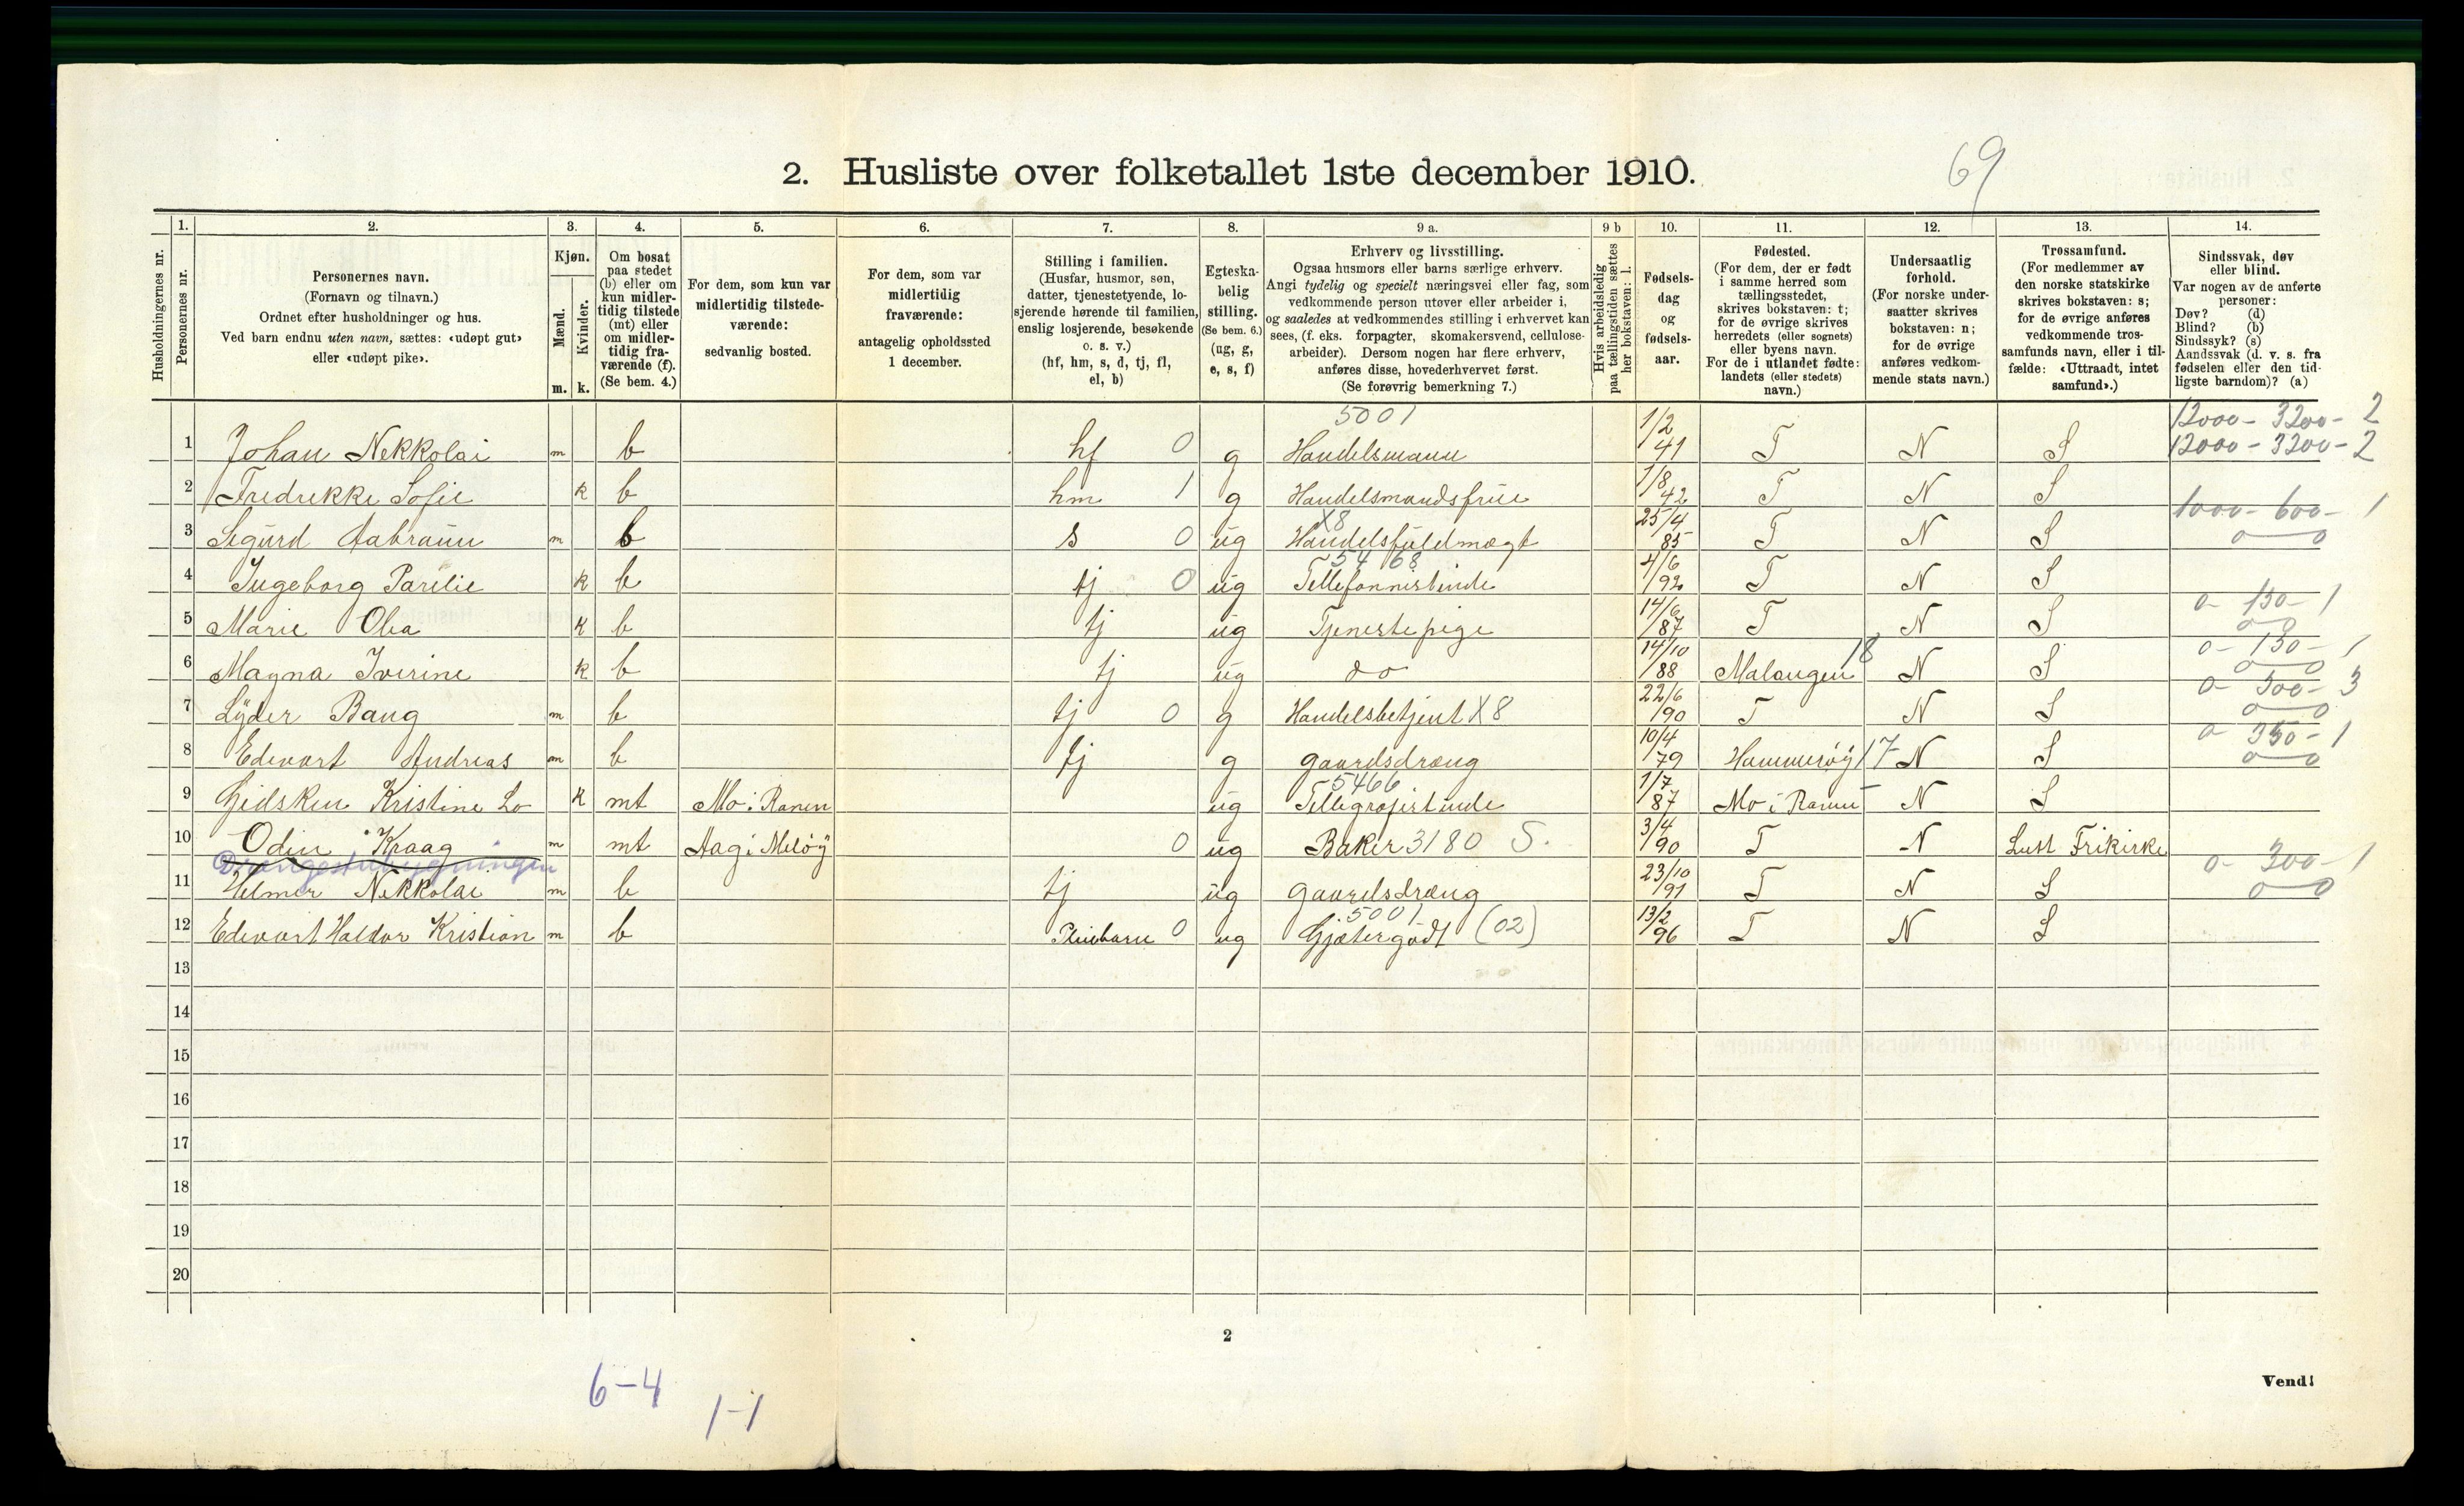 2. Husliste over folketallet 1ste december 1910.
69
Husholdningernes nr.
1. Personernes nr.
2. Personernes navn.
(Fornavn og tilnavn.)
Ordnet efter husholdninger og hus.
Ved barn endnu uten navn, sættes: «udøpt gut»
eller «udøpt pike».
3. Kjøn.
Mænd. Kvinder.
m. k.
4. Om bosat
paa stedet
(b) eller om
kun midler-
tidig tilstede
(mt) eller
om midler-
tidig fra-
værende (f).
(Se bem. 4.)
5. For dem, som kun var
midlertidig tilstede-
værende:
sedvanlig bosted.
6. For dem, som var
midlertidig
fraværende:
antagelig opholdssted
1 december.
7. Stilling i familien.
(Husfar, husmor, søn,
datter, tjenestetyende, lo-
sjerende hørende til familien,
enslig losjerende, besøkende
o. s. v.)
(hf, hm, s, d, tj, fl,
el, b)
8. Egteska-
belig
stilling.
(Se bem. 6.)
(ug, g,
e, s, f)
9 a. Erhverv og livsstilling.
Ogsaa husmors eller barns særlige erhverv.
Angi tydelig og specielt næringsvei eller fag, som
vedkommende person utøver eller arbeider i,
og saaledes at vedkommendes stilling i erhvervet kan
sees, (f. eks. forpagter, skomakersvend, cellulose-
arbeider). Dersom nogen har flere erhverv,
anføres disse, hovederhvervet først.
(Se forøvrig bemerkning 7.)
9 b Hvis arbeidsledig
paa tællingstiden sættes
her bokstaven: l.
10. Fødsels-
dag
og
fødsels-
aar.
11. Fødested.
(For dem, der er født
i samme herred som
tællingsstedet,
skrives bokstaven: t;
for de øvrige skrives
herredets (eller sognets)
eller byens navn.
For de i utlandet fødte:
landets (eller stedets)
navn.)
12. Undersaatlig
forhold.
(For norske under-
saatter skrives
bokstaven: n;
for de øvrige
anføres vedkom-
mende stats navn.)
13. Trossamfund.
(For medlemmer av
den norske statskirke
skrives bokstaven: s;
for de øvrige anføres
vedkommende tros-
samfunds navn, eller i til-
fælde: «Uttraadt, intet
samfund».)
14. Sindssvak, døv
eller blind.
Var nogen av de anførte
personer:
Døv? (d)
Blind? (b)
Sindssyk? (s)
Aandssvak (d. v. s. fra
fødselen eller den tid-
ligste barndom)? (a)
5001 12000 - 3200 - 2
1 Johan Nekkolai m b hf 0 g Handelsmann 1/2 41 T N S 12000 - 3200 - 2
2 Fredrekke Sofie k b hm 1 g Handelsmandsfrue 1/8 42 T N S
X8 1000 - 600 - 1
3 Sigurd Aabraun m b s 0 ug Handelsfuldmægt 25/4 85 T N S 0 0
54 68
4 Ingeborg Parelie k b tj 0 ug Tellefonnistinde 4/6 92 T N S
0 - 150 - 1
5 Marie Olea k b tj ug Tjenestepige 14/6 87 T N S 0 0
0 - 130 - 1
6 Magna Iverine k b tj ug do 14/10 88 Malangen 18 N S 0 0
0 - 500 - 3
7 Lyder Bang m b tj 0 g Handelsbetjent X8 22/6 90 T N S 0 0
0 - 350 - 1
8 Edevart Andreas m b tj g gaardsdræng 10/4 79 Hammerøy 17 N S 0 0
5466
9 Gidsken Kristine Lo k mt Mo i Ranen ug Tellegrafistinde 1/7 87 Mo i Ranen N S
10 Odin Kraag m mt Aag i Meløy 0 ug Baker 3180 S. 3/4 90 T N Luth Frikirke
Drengestubygningen 0 - 300 - 1
11 Helmer Nekkolai m b tj ug gaardsdræng 23/10 91 T N S 0 0
5001
12 Edevart Haldor Kristian m b Pleiebarn 0 ug Gjætergudt (02) 13/2 96 T N S
13
14
15
16
17
18
19
20
2
Vend!
6-4
1-1